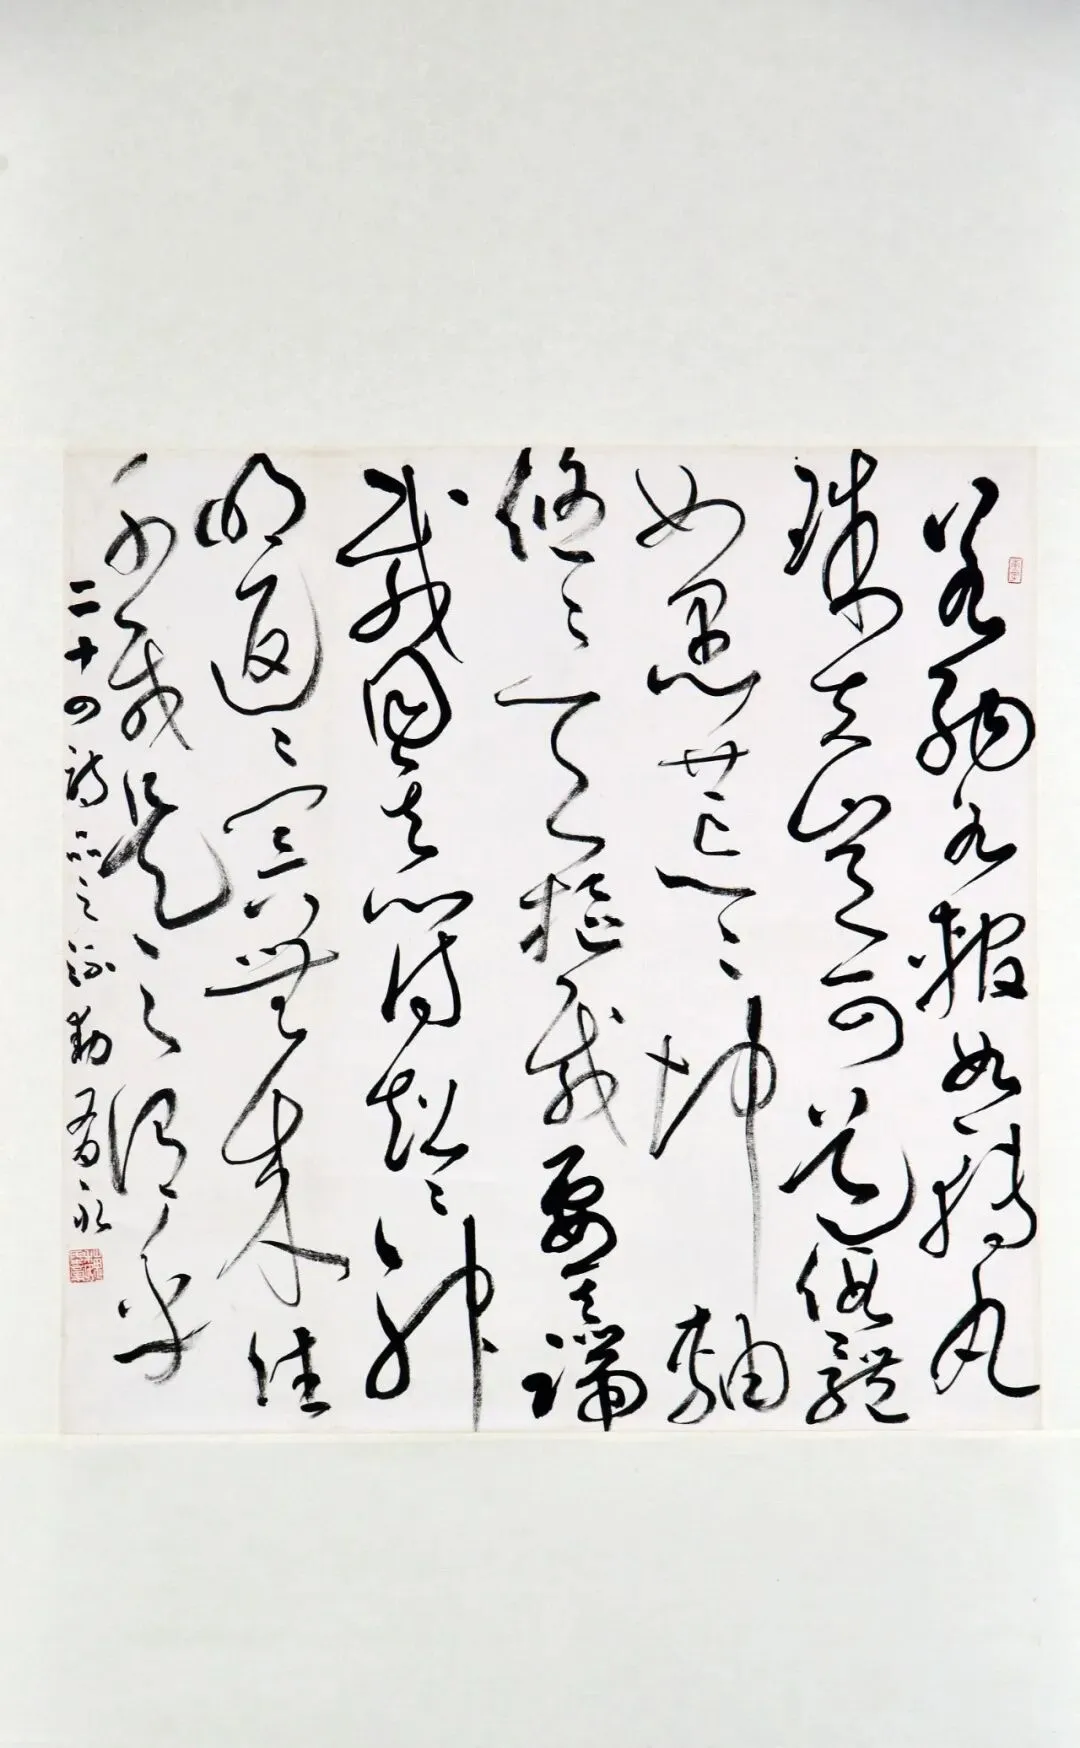 若納水輨如轉丸
珠夫豈可道假體
如愚荒〻坤軸
悠〻天樞載要其端
載同其符超〻神
明返〻冥無來往
千載是之謂乎
二十四詩品之流動